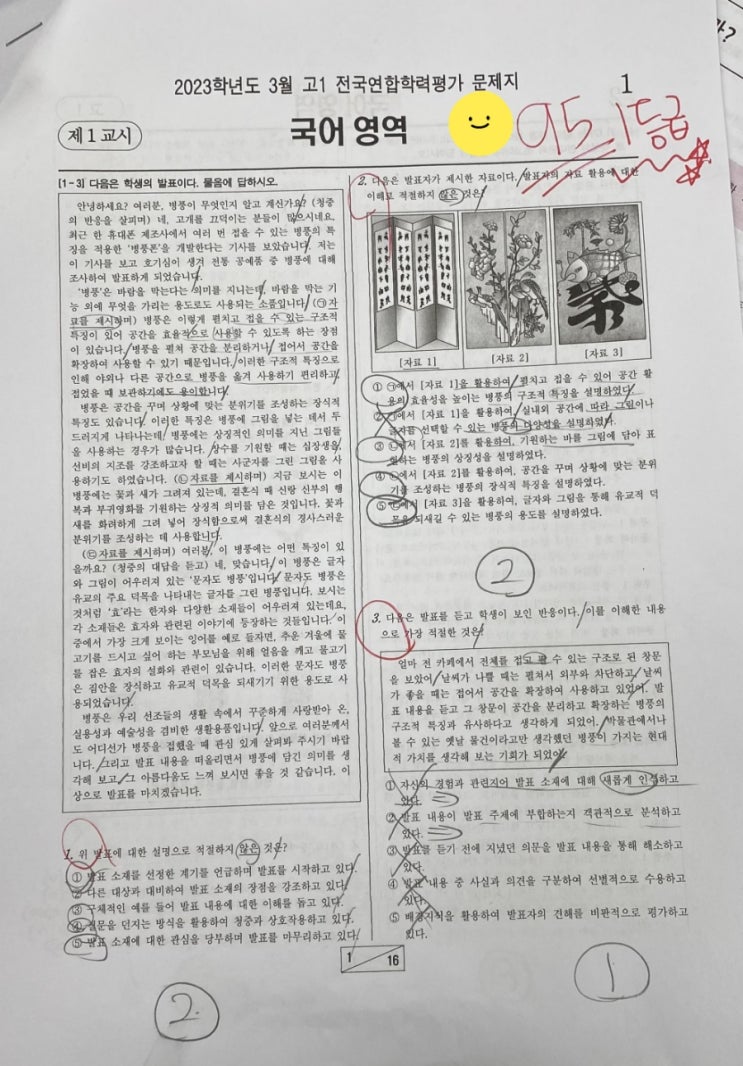 2023학년도 3월 고1 전국연합학력평가 문제지
1
제 1 교시
국어 영역
95 1등급
[1~3] 다음은 학생의 발표이다. 물음에 답하시오.
안녕하세요? 여러분, 병풍이 무엇인지 알고 계신가요? (청중
의 반응을 살피며) 네, 고개를 끄덕이는 분들이 많으시네요.
최근 한 휴대폰 제조사에서 여러 번 접을 수 있는 병풍의 특
징을 적용한 ‘병풍폰’을 개발한다는 기사를 보았습니다. 저는
이 기사를 보고 호기심이 생겨 전통 공예품 중 병풍에 대해
조사하여 발표하게 되었습니다.
‘병풍’은 바람을 막는다는 의미를 지니는데, 바람을 막는 기
능 외에 무엇을 가리는 용도로도 사용되는 소품입니다. (㉠자
료를 제시하며) 병풍은 이렇게 펼치고 접을 수 있는 구조적
특징이 있어 공간을 효율적으로 사용할 수 있도록 하는 장점
이 있습니다. 병풍을 펼쳐 공간을 분리하거나 접어서 공간을
확장하여 사용할 수 있기 때문입니다. 이러한 구조적 특징으로
인해 야외나 다른 공간으로 병풍을 옮겨 사용하기 편리하고
접었을 때 보관하기에도 용이합니다.
병풍은 공간을 꾸며 상황에 맞는 분위기를 조성하는 장식적
특징도 있습니다. 이러한 특징은 병풍에 그림을 넣는 데서 두
드러지게 나타나는데, 병풍에는 상징적인 의미를 지닌 그림들
을 사용하는 경우가 많습니다. 장수를 기원할 때는 십장생을,
선비의 지조를 강조하고자 할 때는 사군자를 그린 그림을 사
용하기도 하였습니다. (㉡자료를 제시하며) 지금 보시는 이
병풍에는 꽃과 새가 그려져 있는데, 결혼식 때 신랑 신부의 행
복과 부귀영화를 기원하는 상징적 의미를 담은 것입니다. 꽃과
새를 화려하게 그려 넣어 장식함으로써 결혼식의 경사스러운
분위기를 조성하는 데 사용했습니다.
(㉢자료를 제시하며) 여러분, 이 병풍에는 어떤 특징이 있
을까요? (청중의 대답을 듣고) 네, 맞습니다. 이 병풍은 글자
와 그림이 어우러져 있는 ‘문자도 병풍’입니다. 문자도 병풍은
유교의 주요 덕목을 나타내는 글자를 그린 병풍입니다. 보시는
것처럼 ‘효’라는 한자와 다양한 소재들이 어우러져 있는데요,
각 소재들은 효자와 관련된 이야기에 등장하는 것들입니다. 이
중에서 가장 크게 보이는 잉어를 예로 들자면, 추운 겨울에 물
고기를 드시고 싶어 하는 부모님을 위해 얼음을 깨고 물고기
를 잡은 효자의 설화와 관련이 있습니다. 이러한 문자도 병풍
은 집안을 장식하고 유교적 덕목을 되새기기 위한 용도로 사
용되었습니다.
병풍은 우리 선조들의 생활 속에서 꾸준하게 사랑받아 온,
실용성과 예술성을 겸비한 생활용품입니다. 앞으로 여러분께서
도 어디선가 병풍을 접했을 때 관심 있게 살펴봐 주시기 바랍
니다. 그리고 발표 내용을 떠올리면서 병풍에 담긴 의미를 생
각해 보고, 그 아름다움도 느껴 보시면 좋을 것 같습니다. 이
상으로 발표를 마치겠습니다.
1. 위 발표에 대한 설명으로 적절하지 않은 것은?
① 발표 소재를 선정한 계기를 언급하며 발표를 시작하고 있다.
② 다른 대상과 대비하여 발표 소재의 장점을 강조하고 있다.
③ 구체적인 예를 들어 발표 내용에 대한 이해를 돕고 있다.
④ 질문을 던지는 방식을 활용하여 청중과 상호작용하고 있다.
⑤ 발표 소재에 대한 관심을 당부하며 발표를 마무리하고 있다.
2
2. 다음은 발표자가 제시한 자료이다. 발표자의 자료 활용에 대한
이해로 적절하지 않은 것은?
[자료 1]
[자료 2]
[자료 3]
① ㉠에서 [자료 1]을 활용하여, 펼치고 접을 수 있어 공간 활
용의 효율성을 높이는 병풍의 구조적 특징을 설명하였다.
② ㉠에서 [자료 1]을 활용하여, 실내외 공간에 따라 그림이나
글자를 선택할 수 있는 병풍의 다양성을 설명하였다.
③ ㉡에서 [자료 2]를 활용하여, 기원하는 바를 그림에 담아 표
현하는 병풍의 상징성을 설명하였다.
④ ㉡에서 [자료 2]를 활용하여, 공간을 꾸며 상황에 맞는 분위
기를 조성하는 병풍의 장식적 특징을 설명하였다.
⑤ ㉢에서 [자료 3]을 활용하여, 글자와 그림을 통해 유교적 덕
목을 되새길 수 있는 병풍의 용도를 설명하였다.
2
3. 다음은 발표를 듣고 학생이 보인 반응이다. 이를 이해한 내용
으로 가장 적절한 것은?
얼마 전 카페에서 전체를 접고 펼 수 있는 구조로 된 창문
을 보았어. 날씨가 나쁠 때는 펼쳐서 외부와 차단하고, 날씨
가 좋을 때는 접어서 공간을 확장하여 사용하고 있었어. 발
표 내용을 듣고 그 창문이 공간을 분리하고 확장하는 병풍의
구조적 특징과 유사하다고 생각하게 되었어. 박물관에서나
볼 수 있는 옛날 물건이라고만 생각했던 병풍이 가지는 현대
적 가치를 생각해 보는 기회가 되었어.
① 자신의 경험과 관련지어 발표 소재에 대해 새롭게 인식하고
있다.
② 발표 내용이 발표 주제에 부합하는지 객관적으로 분석하고
있다.
③ 발표를 듣기 전에 지녔던 의문을 발표 내용을 통해 해소하고
있다.
④ 발표 내용 중 사실과 의견을 구분하여 선별적으로 수용하고
있다.
⑤ 배경지식을 활용하여 발표자의 견해를 비판적으로 평가하고
있다.
1
1 16